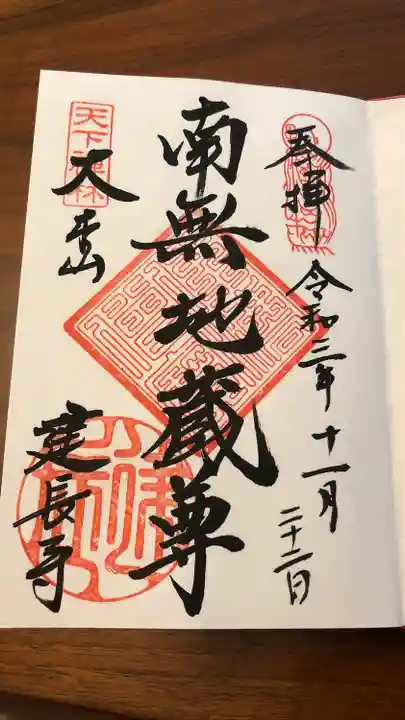 奉拝
令和三年十一月
二十二日
南無地蔵尊
天下禅林
大本山
建長寺